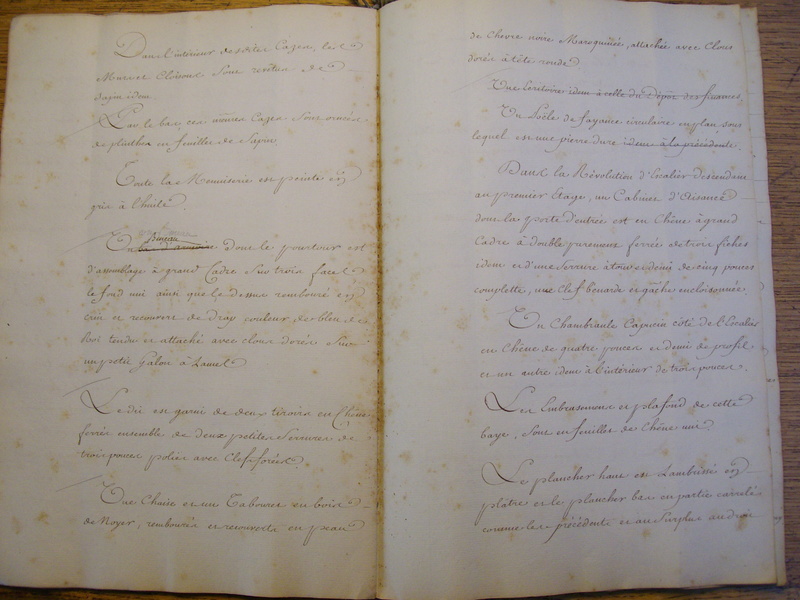 Dans l'intérieur desdites Cases, les
Murs et Cloisons sont revêtus de
sapin idem.
Par le bas, ces mêmes Cases sont ornées
de plinthes en feuilles de Sapin.
Toute la Menuiserie est peinte en
gris à l'huile.
Bureau
Un bas d'armoire dont le pourtour est
d'assemblage à grand Cadre sur trois faces
le fond uni ainsi que le dessus rembouré en
crin et recouvert de drap couleur de bleu de
Roi tendu et attaché avec clous dorés sur
un petit Galon à Lames
Ledit est garni de deux tiroirs en Chêne
ferrés ensemble de deux petites Serrures de
trois pouces polies avec Clefs forées.
Une Chaise et un Tabouret en bois
de Noyer, rembourés et recouverts en peau
de Chevre noire Maroquinée, attachée avec Clous
dorés à tête ronde
Une Ecritoire idem à celle du Dépôt des finances.
Un Poële de fayance circulaire en plan, sous
lequel est une pierre dure idem à la précédente.
Dans la Révolution d'Escalier descendant
au premier Etage, un Cabinet d'Aisance
dont la porte d'entrée est en Chêne à grand
Cadre à double parement ferrée de trois fiches
idem et d'une Serrure à tour et demi de cinq pouces
complette, une Clef bénarde et gâche encloisonnée
Un Chambranle Capucin côté de l'Escalier
en Chêne de quatre pouces et demi de profil
et un autre idem à l'intérieur de trois pouces.
Les Embrasemens et plafond de cette
baye, sont en feuilles de Chêne uni.
Le plancher haut est Lambrissé en
plâtre et le plancher bas en partie carrelé
comme les précédents et au Surplus au droit